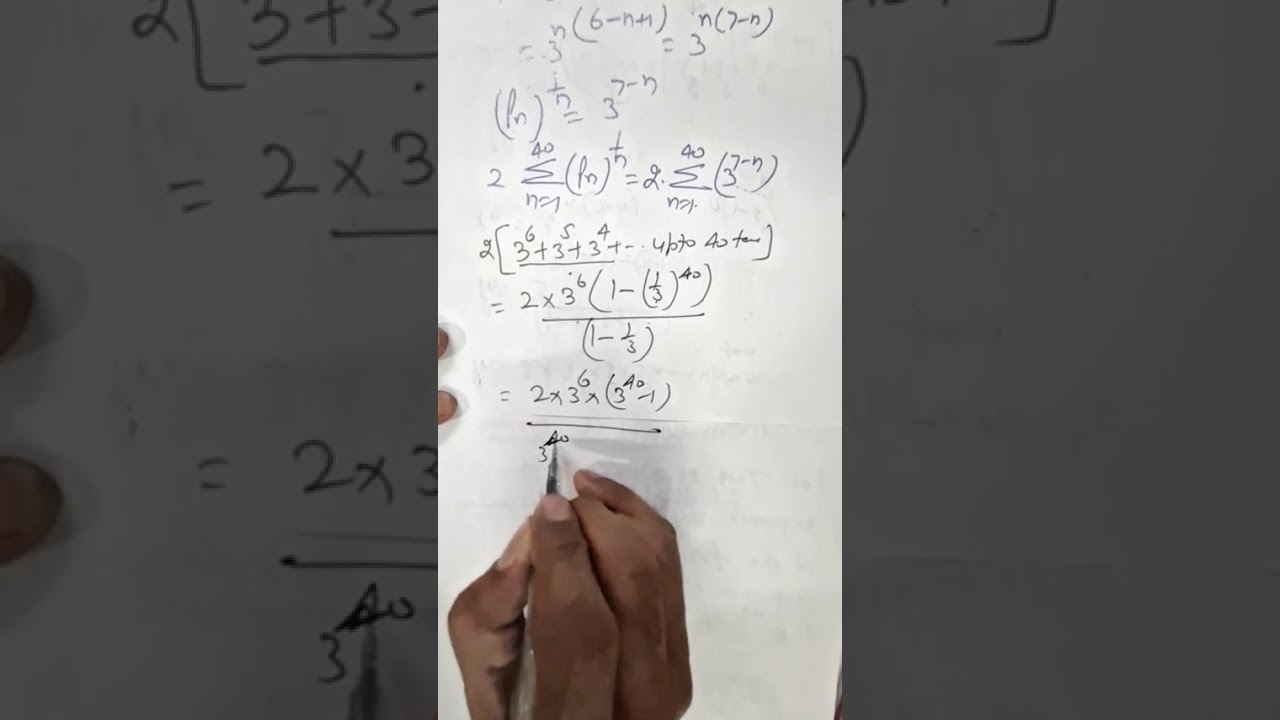 = 3^n(6-n+1) = 3^n(7-n)
(Pn)^1/n = 3^7-n
2 40 Σ n=1 (Pn)^1/n = 2. 40 Σ n=1 (3^7-n)
2[3^6+3^5+3^4+-. upto 40 term]
= 2×3^6(1-(1/3)^40)
(1-1/3)
= 2×3^6×(3^40-1)
3^40